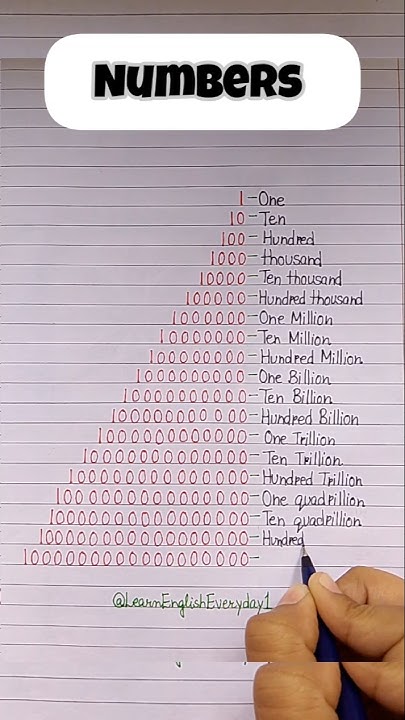 NUMBERS
1 - One
10 - Ten
100 - Hundred
1000 - thousand
10000 - Ten thousand
100000 - Hundred thousand
1000000 - One Million
10000000 - Ten Million
100000000 - Hundred Million
1000000000 - One Billion
10000000000 - Ten Billion
100000000000 - Hundred Billion
1000000000000 - One Trillion
10000000000000 - Ten Trillion
100000000000000 - Hundred Trillion
1000000000000000 - One quadrillion
10000000000000000 - Ten quadrillion
100000000000000000 - Hundred
1000000000000000000 -
@LearnEnglishEveryday1